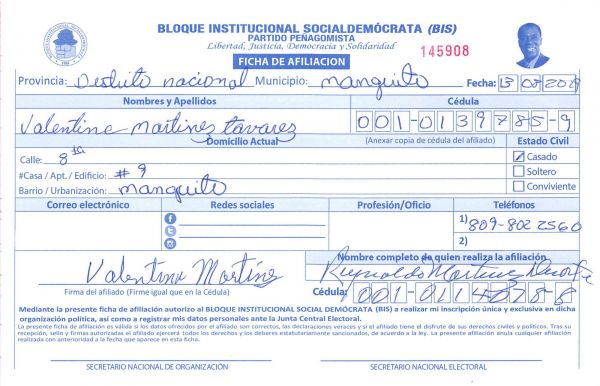 BLOQUE INSTITUCIONAL SOCIALDEMÓCRATA (BIS)
PARTIDO PEÑAGOMISTA
Libertad, Justicia, Democracia y Solidaridad
FICHA DE AFILIACION
145908
Provincia: Destrito nacional Municipio: manguito Fecha: 13 08 202
Nombres y Apellidos Cédula
Valentine martines tavares 001-0139785-9
Domicilio Actual (Anexar copia de cédula del afiliado) Estado Civil
Calle: 8ta Casado
#Casa / Apt. / Edificio: # 9 Soltero
Barrio / Urbanización: manguito Conviviente
Correo electrónico Redes sociales Profesión/Oficio Teléfonos
1) 809-802 2560
2)
Nombre completo de quien realiza la afiliación
Valentine Martine Reynoldo Martinez
Firma del afiliado (Firme igual que en la Cédula) Cédula: 001-011
Mediante la presente ficha de afiliación autorizo al BLOQUE INSTITUCIONAL SOCIAL DEMÓCRATA (BIS) a realizar mi inscripción única y exclusiva en dicha
organización política, así como a registrar mis datos personales ante la Junta Central Electoral.
La presente ficha de afiliación es válida si los datos ofrecidos por el afiliado son correctos, las declaraciones veraces y si el afiliado tiene el disfrute de sus derechos civiles y políticos. Tras su
recepción, sello y firmas autorizadas el afiliado ejercerá todos los derechos y los deberes estatutariamente sancionados, de acuerdo a la ley. La presente afiliación anula cualquier afiliación
realizada con anterioridad a la fecha que aparece en esta ficha.
SECRETARIO NACIONAL DE ORGANIZACIÓN SECRETARIO NACIONAL ELECTORAL